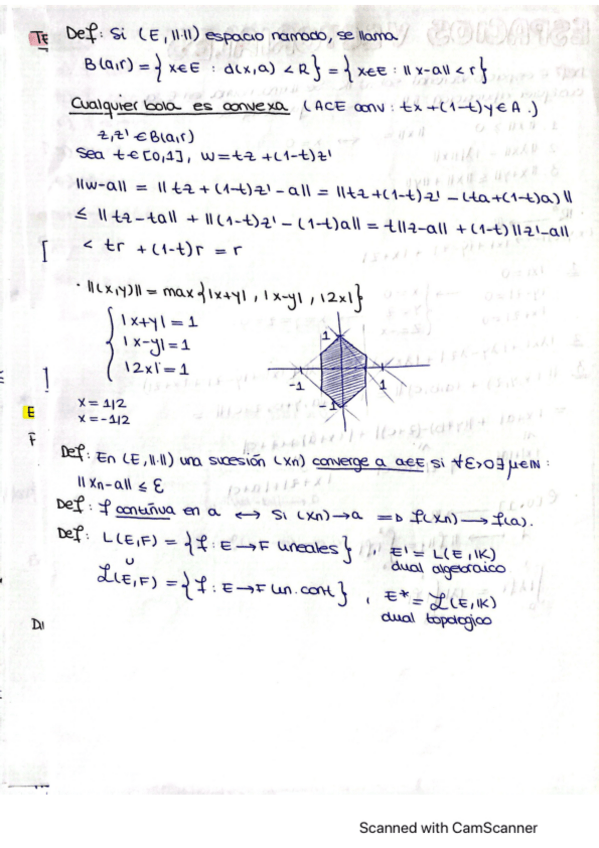 TE
Def: Si (E, ||·||) espacio normado, se llama
B(a,r) = {x∈E : d(x,a) < R} = {x∈E : ||x-a|| < r}
Cualquier bola es convexa (A⊂E conv: tx + (1-t)y ∈ A.)
z, z' ∈ B(a,r)
Sea t∈[0,1], w = tz + (1-t)z'
||w-a|| = ||tz + (1-t)z' - a|| = ||tz + (1-t)z' - (ta + (1-t)a)||
≤ ||tz - ta|| + ||(1-t)z' - (1-t)a|| = t||z-a|| + (1-t)||z'-a||
< tr + (1-t)r = r
· ||(x,y)|| = max{|x+y|, |x-y|, |2x|}
{ |x+y| = 1
|x-y| = 1
|2x| = 1
x = 1/2
x = -1/2
1
-1
1
-1
E
F
Def: En (E, ||·||) una sucesión (xn) converge a a∈E si ∀ε>0 ∃ μ∈ℕ:
||xn-a|| ≤ ε
Def: f continua en a ↔ Si (xn)→a ⇒ f(xn) → f(a).
Def: L(E,F) = {f: E→F lineales}, E' = L(E, IK)
dual algebraico
∪
ℒ(E,F) = {f: E→F lin. cont}, E* = ℒ(E, IK)
dual topologico
Di
Scanned with CamScanner